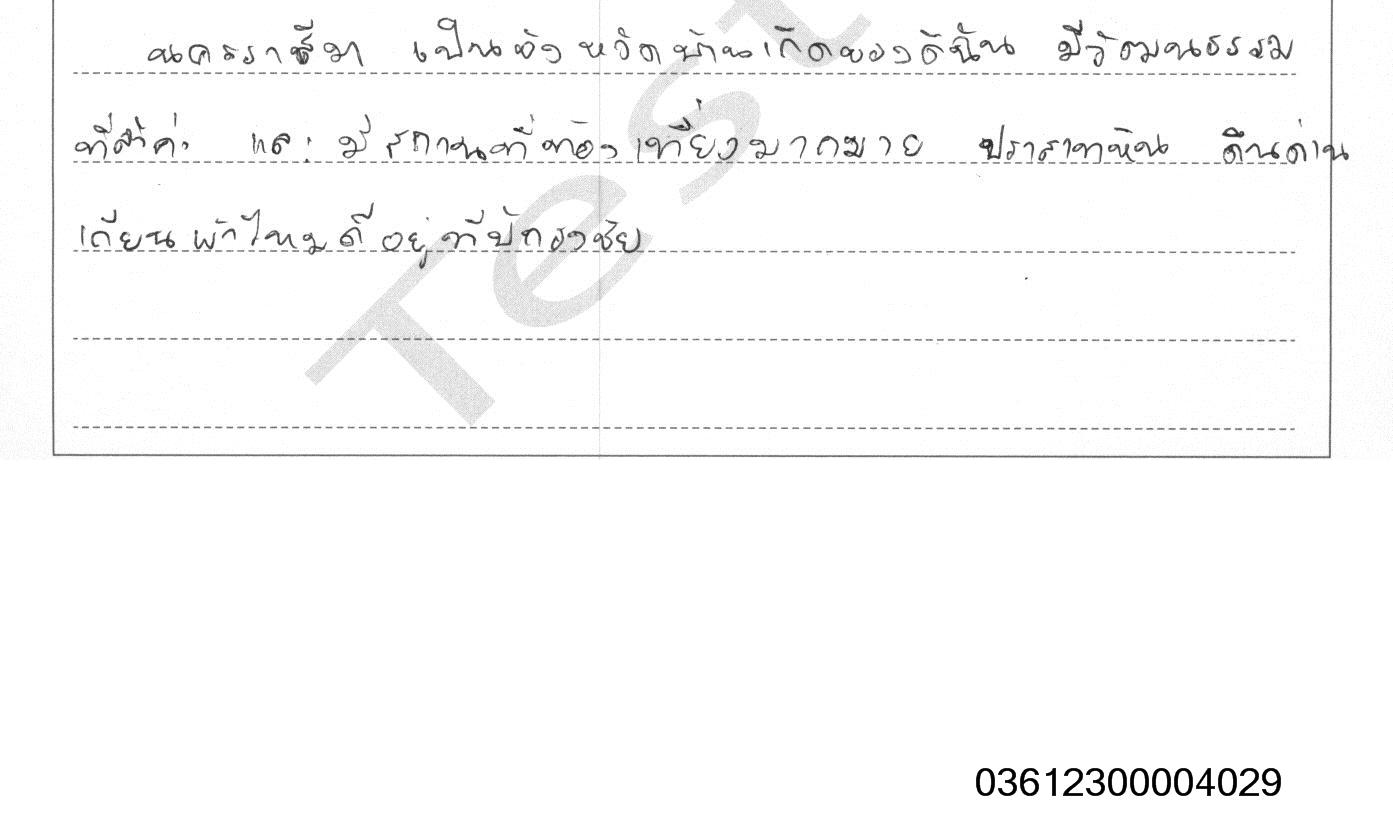 นครราชสีมา เป็นจังหวัดบ้านเกิดของดิฉัน มีวัฒนธรรม
ที่ล้ำค่า และ มี สถานที่ท่องเที่ยงมากมาย ปราสาทหิน ดินด่าน
เกียน ผ้าไหมดี อยู่ที่ปักธงชัย
Test
03612300004029